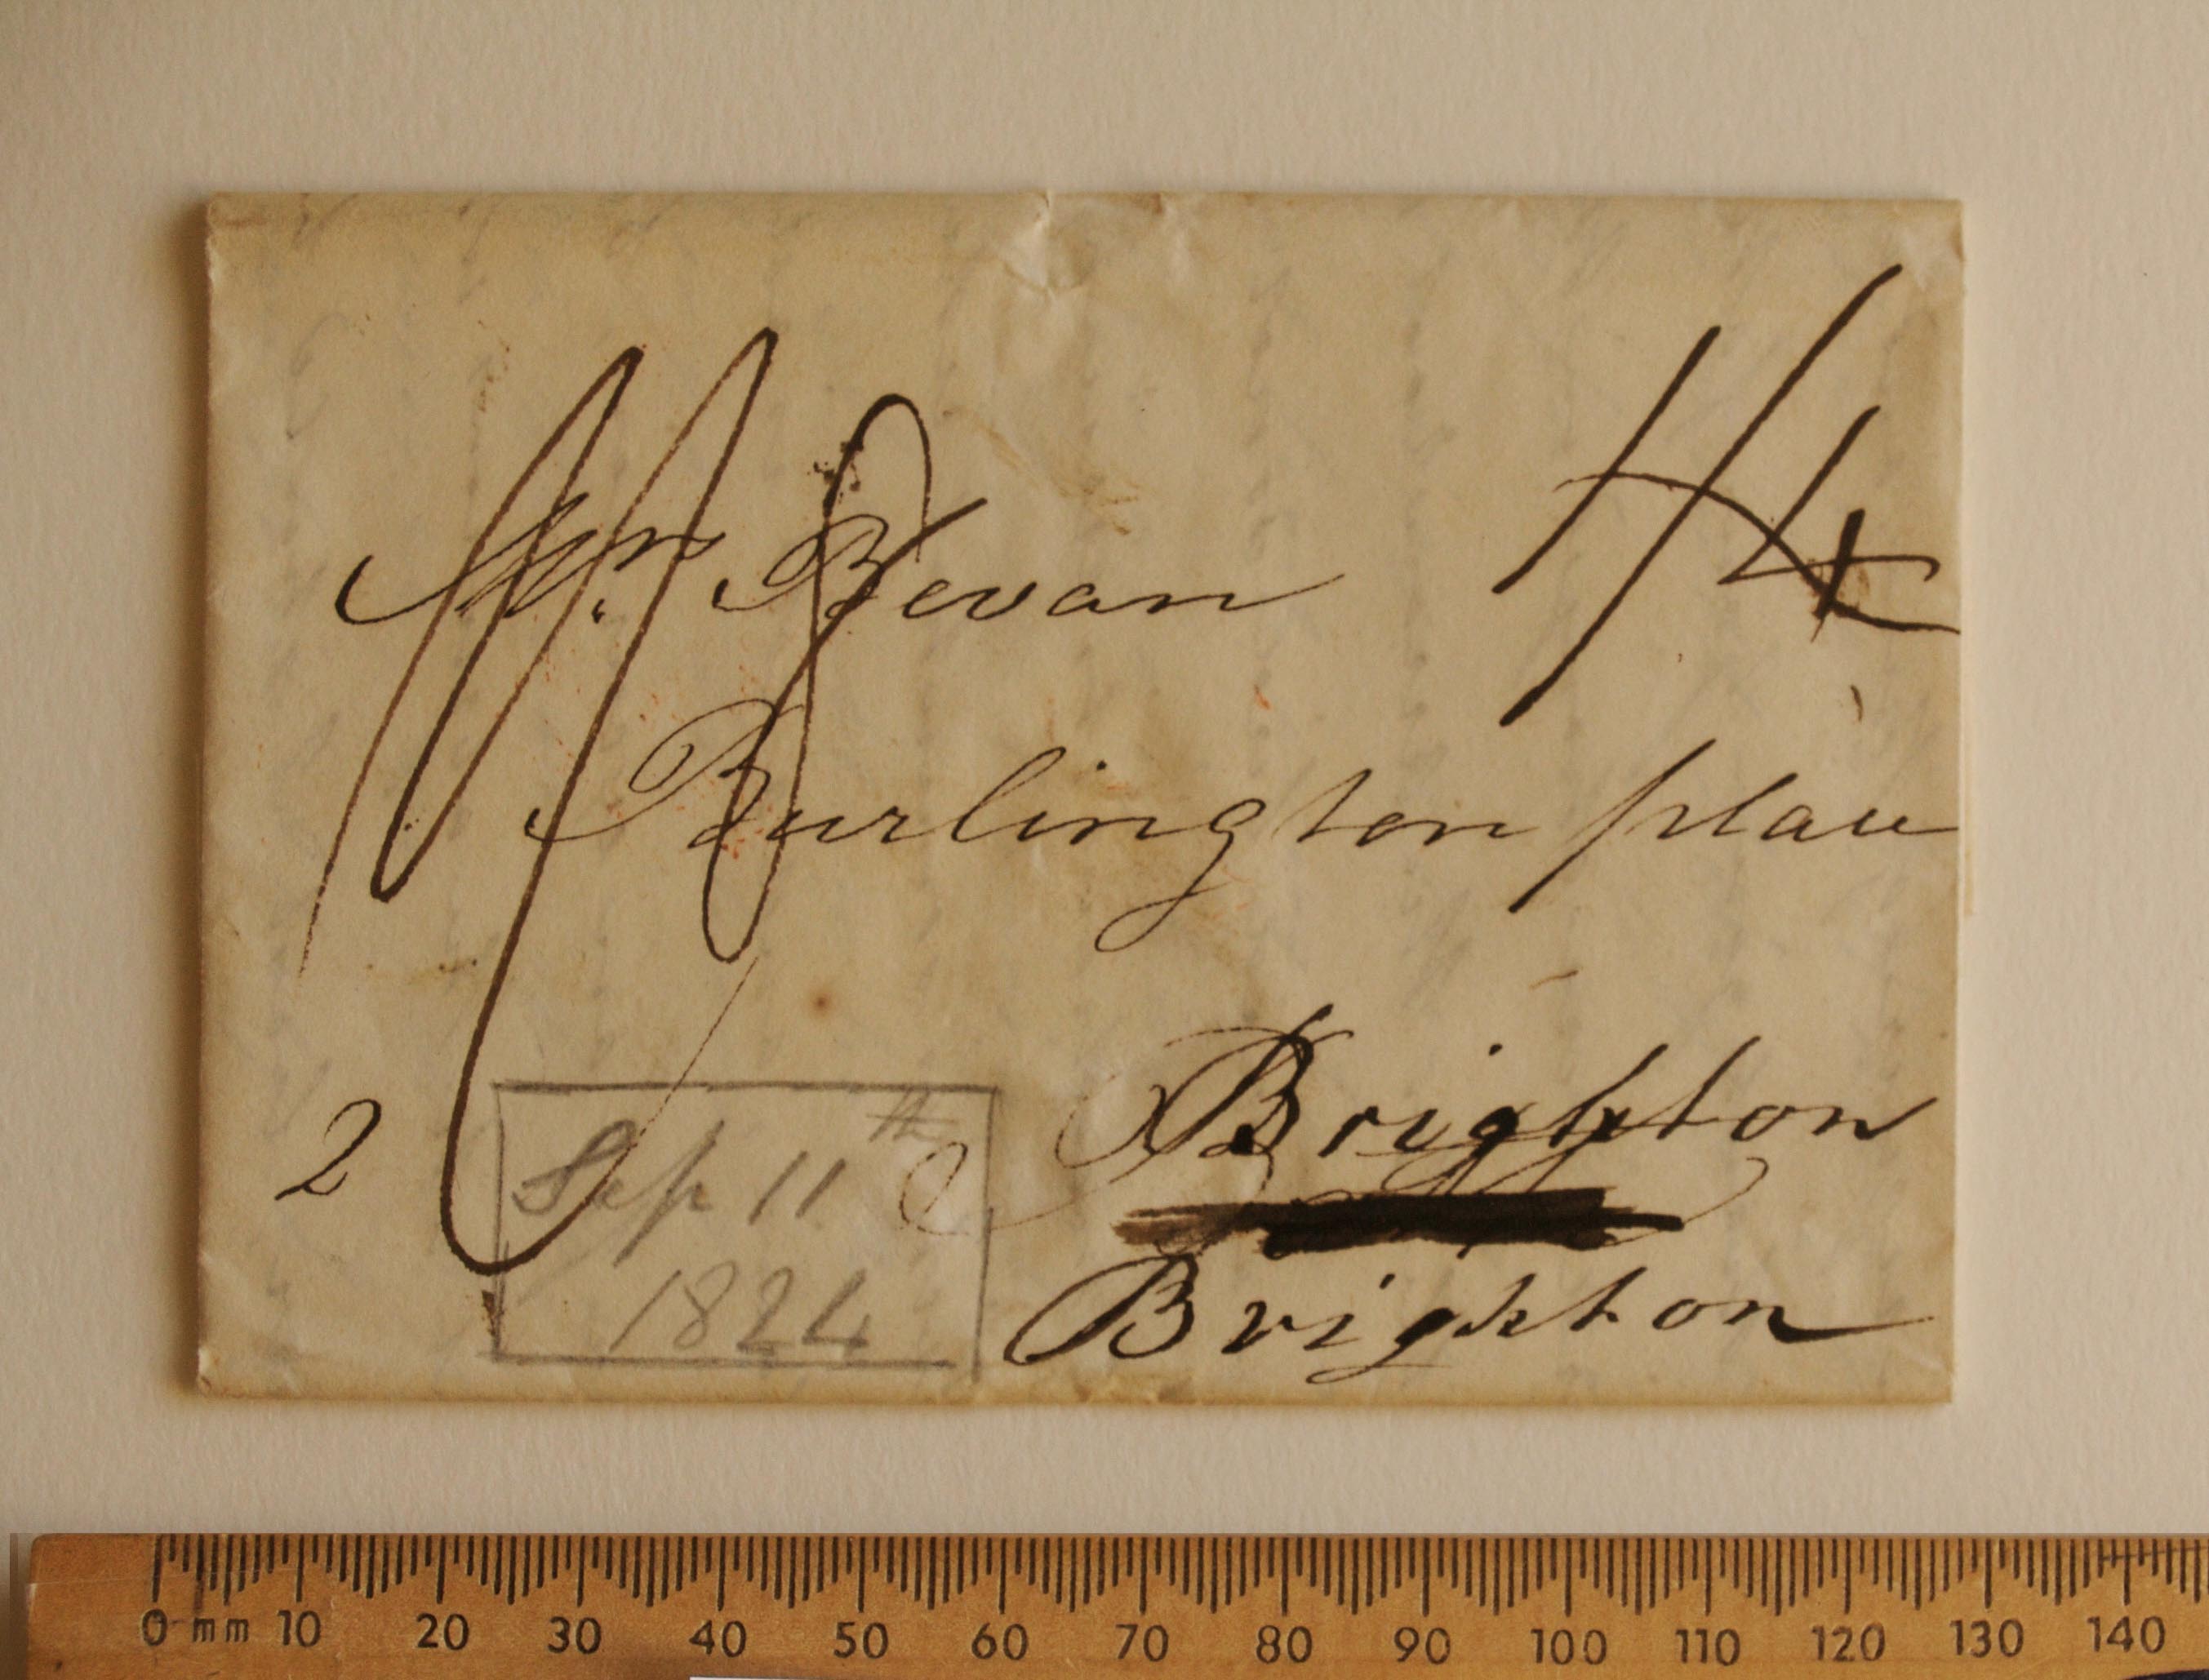 Mrs. Bevan
1/4
Burlington place
Brighton
Brighton
2
Sep 11th
1824
0 mm 10 20 30 40 50 60 70 80 90 100 110 120 130 140